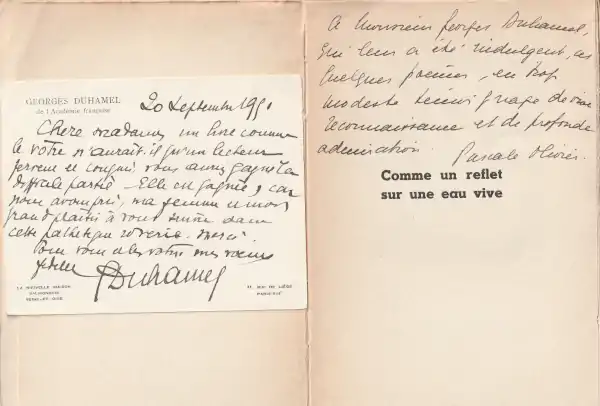 GEORGES DUHAMEL
de l'Académie française
20 Septembre 195
Chère Madame, un livre comme
le vôtre n'aurait-il qu'un lecteur
fervent et conquis, vous auriez gagné la
difficile partie. Elle est gagnée, car
nous avons pris, ma femme et moi,
grand plaisir à vous suivre dans
cette pathétique rêverie. Merci.
Pour vous et les vôtres mes vœux
fidèles
GDuhamel
LA NOUVELLE MAISON
VALMONDOIS
SEINE-ET-OISE
RUE DE LIÈGE
PARIS
A Monsieur Georges Duhamel,
qui leur a été indulgent, ces
quelques poèmes, en trop
modeste témoignage de vive
reconnaissance et de profonde
admiration.
Pascale Olivier.
Comme un reflet
sur une eau vive